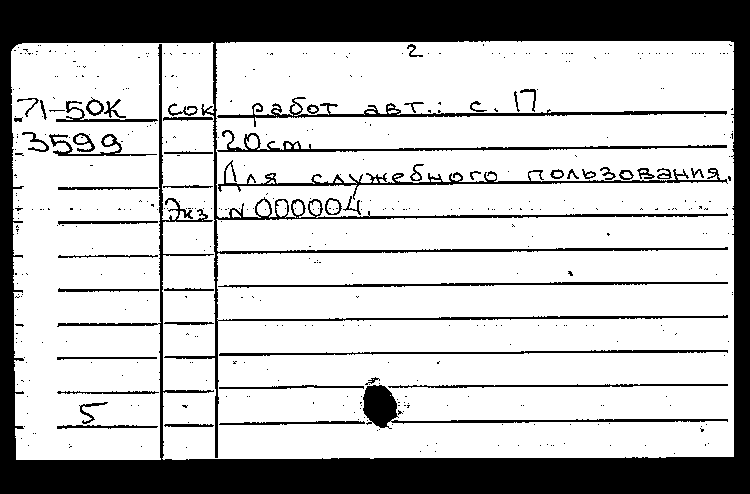 2
71-50К сок работ авт.: с. 17.
3599 20cm.
Для служебного пользования.
Экз N 000004.
5